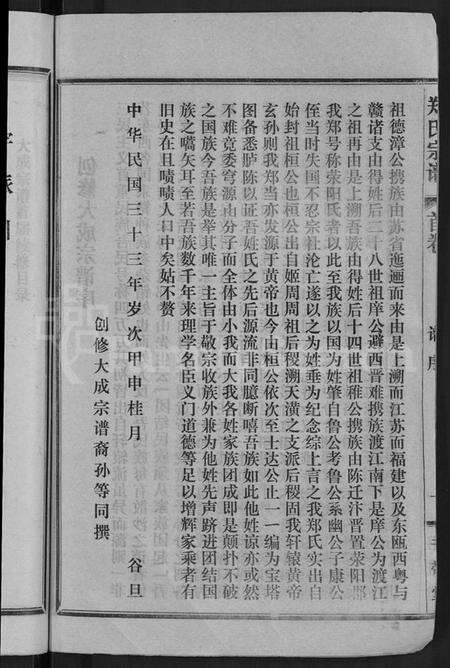 祖德漳公携族由苏省迤逦而来由是上溯而江苏而福建以及东瓯西粤与
赣诸支由得姓后二十八世祖庠公避西晋难携族渡江南下是庠公为渡江
之祖再由是上溯吾族由得姓后十四世祖稚公携族由陈迁汴晋置荥阳郡
我郑号称荥阳氏者以此至我族以国为姓肇自鲁公考鲁公系幽公子康公
侄当时失国不忍宗社沦亡遂以之为姓垂为纪念综上言之我郑氏实出自
始封祖桓公也桓公出自姬周周祖后稷溯天潢之支派后稷固我轩辕黄帝
玄孙则我郑当亦发源于黄帝也今由桓公依次至士达公止一一编为宝塔
图备悉胪陈以证吾姓氏之先后源流非同臆断嘻吾族如此他姓谅亦或然
不难竟委穷源由分子而全体由小我而大我各姓家族团成即是颠扑不破
之国族今吾族是举其唯一主旨于敬宗收族外兼为他姓先声跻进团结国
族之嚆矢耳至若吾族数千年来理学名臣义门道德等足以增辉家乘者有
旧史在且啧啧人口中矣姑不赘
中华民国三十三年岁次甲申桂月 谷旦
创修大成宗谱裔孙等同撰
郑氏宗谱 首卷 谱序